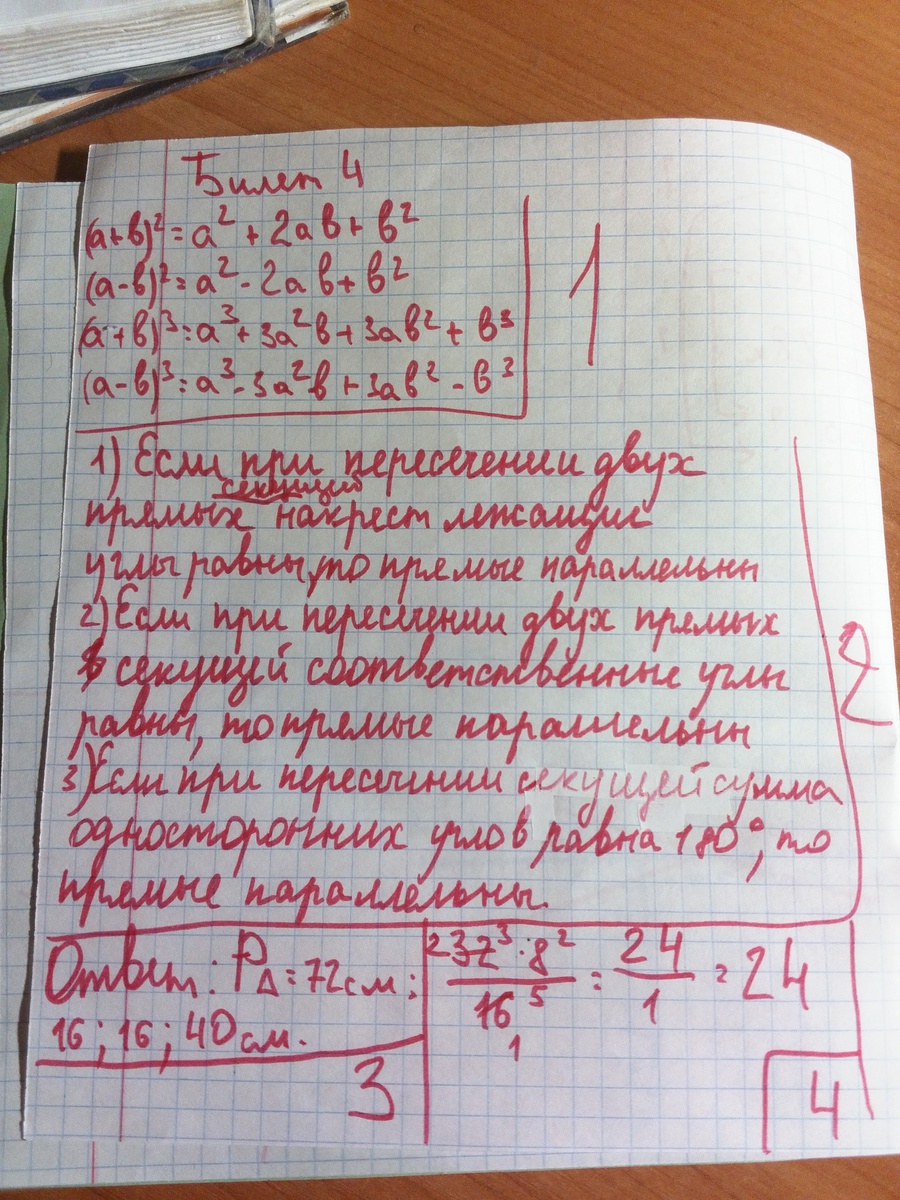 Билет 4
(а+в)² = а² + 2ав + в²
(а-в)² = а² - 2ав + в²
(а+в)³ = а³ + 3а²в + 3ав² + в³
(а-в)³ = а³ - 3а²в + 3ав² - в³
1
1) Если при пересечении двух
секущий
прямых накрест лежащие
углы равны, то прямые параллельны
2) Если при пересечении двух прямых
секущей соответственные углы
равны, то прямые параллельны
2
3) Если при пересечении секущей сумма
односторонних углов равна 180°, то
прямые параллельны.
Ответ: P∆ = 72см;
16; 16; 40см.
3
= 24/1 = 24
4